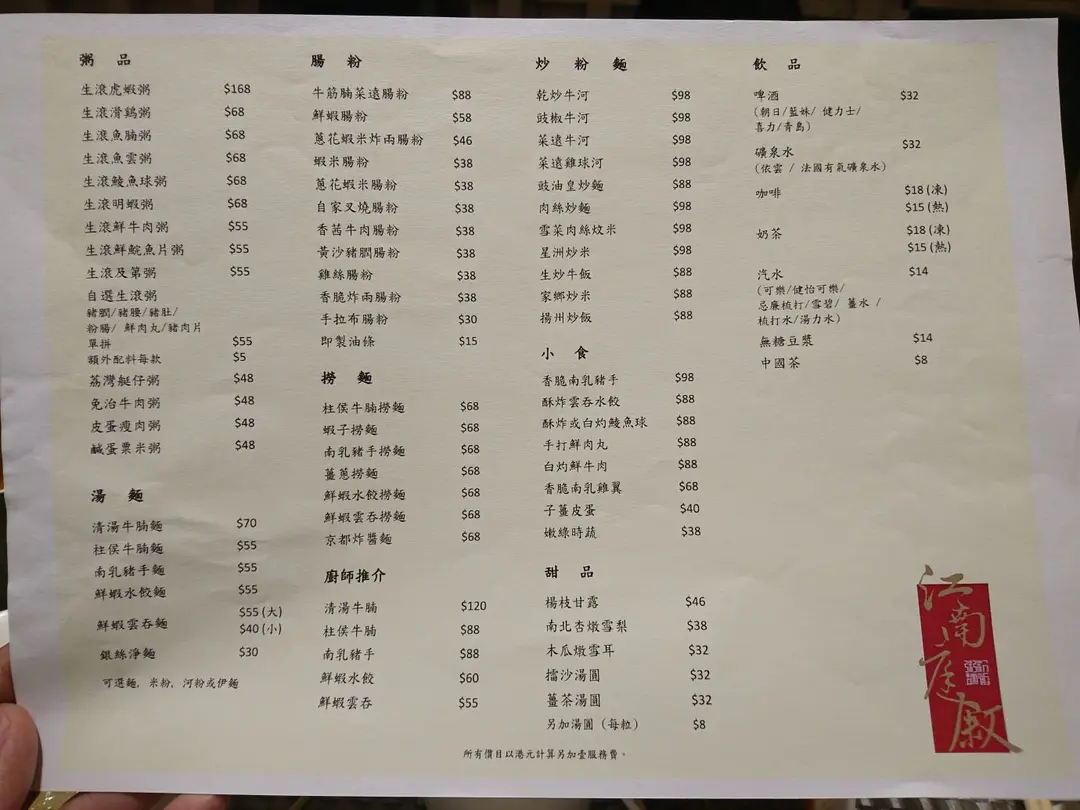 粥 品
生滾虎蝦粥 $168
生滾滑鷄粥 $68
生滾魚腩粥 $68
生滾魚雲粥 $68
生滾鯪魚球粥 $68
生滾明蝦粥 $68
生滾鮮牛肉粥 $55
生滾鮮鯇魚片粥 $55
生滾及第粥 $55
自選生滾粥
豬膶/豬腰/豬肚/
粉腸/ 鮮肉丸/豬肉片
單拼 $55
額外配料每款 $5
荔灣艇仔粥 $48
免治牛肉粥 $48
皮蛋瘦肉粥 $48
鹹蛋粟米粥 $48
湯 麵
清湯牛腩麵 $70
柱侯牛腩麵 $55
南乳豬手麵 $55
鮮蝦水餃麵 $55
鮮蝦雲吞麵 $55 (大)
$40 (小)
銀絲淨麵 $30
可選麵, 米粉, 河粉或伊麵
腸 粉
牛筋腩菜遠腸粉 $88
鮮蝦腸粉 $58
蔥花蝦米炸兩腸粉 $46
蝦米腸粉 $38
蔥花蝦米腸粉 $38
自家叉燒腸粉 $38
香茜牛肉腸粉 $38
黃沙豬膶腸粉 $38
雞絲腸粉 $38
香脆炸兩腸粉 $38
手拉布腸粉 $30
即製油條 $15
撈 麵
柱侯牛腩撈麵 $68
蝦子撈麵 $68
南乳豬手撈麵 $68
薑蔥撈麵 $68
鮮蝦水餃撈麵 $68
鮮蝦雲吞撈麵 $68
京都炸醬麵 $68
廚師推介
清湯牛腩 $120
柱侯牛腩 $88
南乳豬手 $88
鮮蝦水餃 $60
鮮蝦雲吞 $55
炒 粉 麵
乾炒牛河 $98
豉椒牛河 $98
菜遠牛河 $98
菜遠雞球河 $98
豉油皇炒麵 $88
肉絲炒麵 $98
雪菜肉絲炆米 $98
星洲炒米 $98
生炒牛飯 $88
家鄉炒米 $88
揚州炒飯 $88
小 食
香脆南乳豬手 $98
酥炸雲吞水餃 $88
酥炸或白灼鯪魚球 $88
手打鮮肉丸 $88
白灼鮮牛肉 $88
香脆南乳雞翼 $68
子薑皮蛋 $40
嫩綠時蔬 $38
甜 品
楊枝甘露 $46
南北杏燉雪梨 $38
木瓜燉雪耳 $32
擂沙湯圓 $32
薑茶湯圓 $32
另加湯圓 (每粒) $8
飲 品
啤酒 $32
(朝日/藍妹/ 健力士/
喜力/青島)
礦泉水 $32
(依雲 / 法國有氣礦泉水)
咖啡 $18 (凍)
$15 (熱)
奶茶 $18 (凍)
$15 (熱)
汽水 $14
(可樂/健怡可樂/
忌廉梳打/雪碧/ 薑水 /
梳打水/湯力水)
無糖豆漿 $14
中國茶 $8
江南庭廚
所有價目以港元計算另加壹服務費。